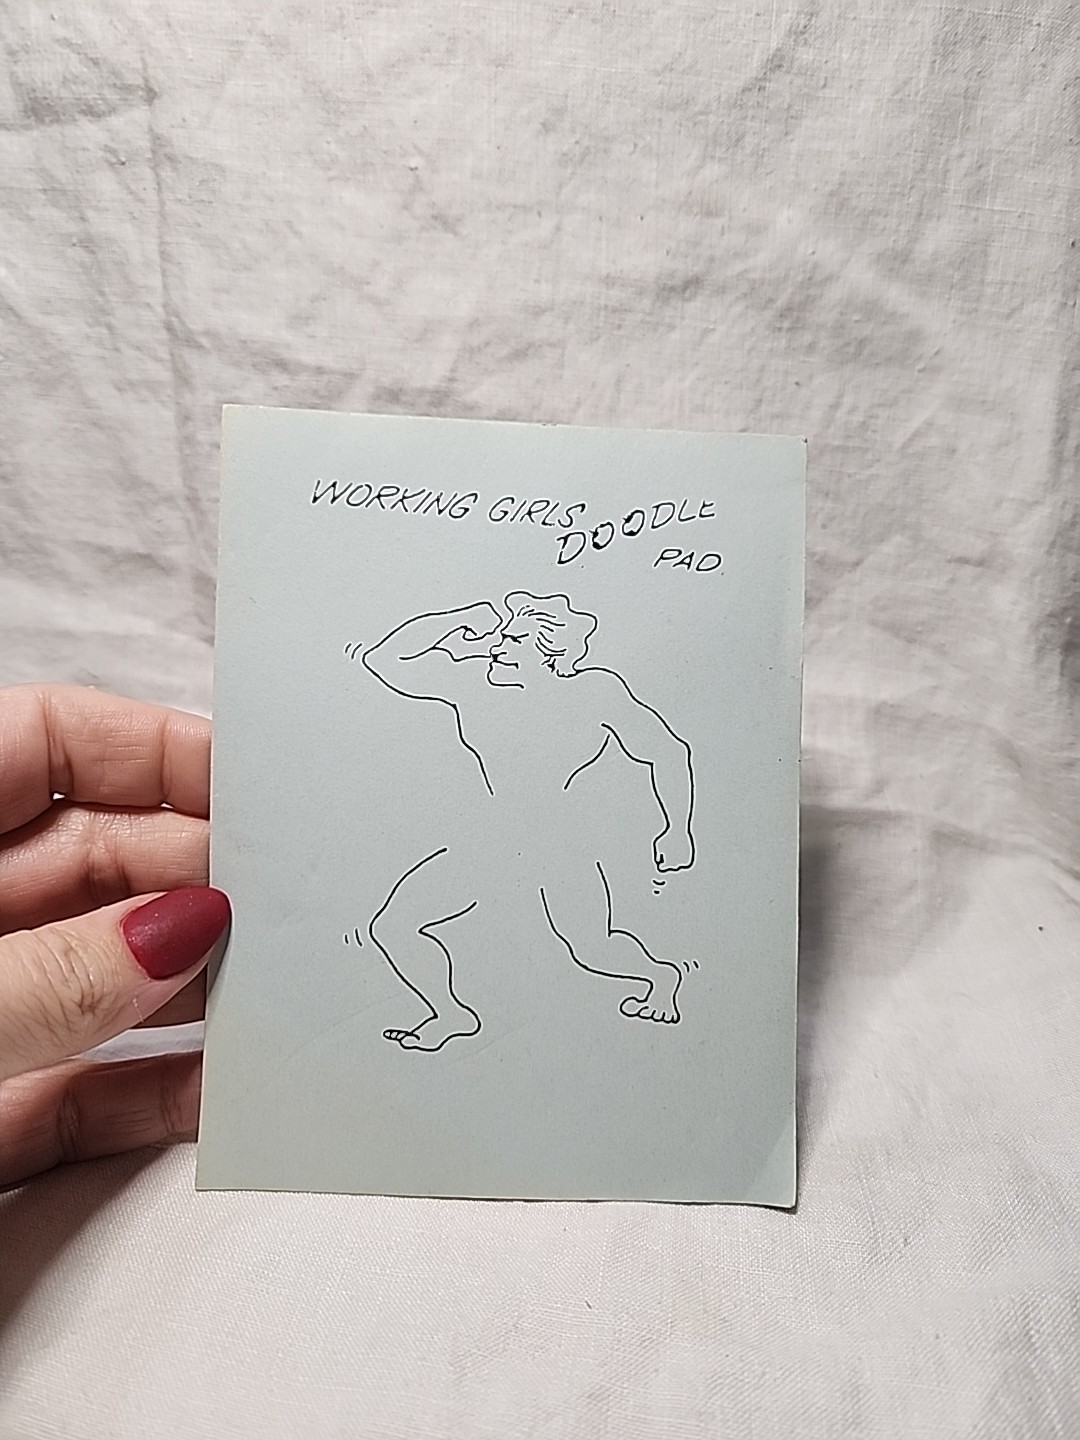 WORKING GIRLS
DOODLE
PAD.